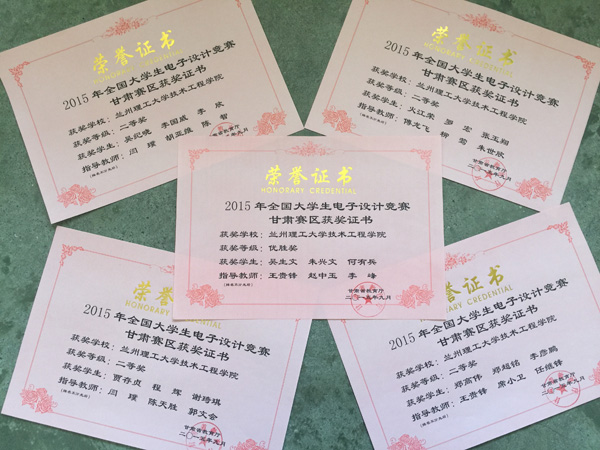 荣誉证书
HONORARY CREDENTIAL
2015年全国大学生电子设计竞赛
甘肃赛区获奖证书
获奖学校：兰州理工大学技术工程学院
获奖等级：二等奖
获奖学生：吴纪晓 李国威 李欣
指导教师：闫璞 胡亚维 陈智
荣誉证书
HONORARY CREDENTIAL
2015年全国大学生电子设计竞赛
甘肃赛区获奖证书
获奖学校：兰州理工大学技术工程学院
获奖等级：二等奖
获奖学生：火江荣 罗宏 张玉翔
指导教师：傅龙飞 柳莺 朱世欣
荣誉证书
HONORARY CREDENTIAL
2015年全国大学生电子设计竞赛
甘肃赛区获奖证书
获奖学校：兰州理工大学技术工程学院
获奖等级：优胜奖
获奖学生：吴生文 朱兴文 何有兵
指导教师：王贵锋 赵中玉 李峰
甘肃省教育厅
二〇一五年九月
荣誉证书
HONORARY CREDENTIAL
2015年全国大学生电子设计竞赛
甘肃赛区获奖证书
获奖学校：兰州理工大学技术工程学院
获奖等级：二等奖
获奖学生：贾存贞 程辉 谢琦琪
指导教师：闫璞 陈天胜 郭文会
甘肃省教育厅
二〇一五年九月
荣誉证书
HONORARY CREDENTIAL
2015年全国大学生电子设计竞赛
甘肃赛区获奖证书
获奖学校：兰州理工大学技术工程学院
获奖等级：二等奖
获奖学生：郑高伟 郑超铭 李彦鹏
指导教师：王贵锋 席小卫 任继锋
甘肃省教育厅
二〇一五年九月